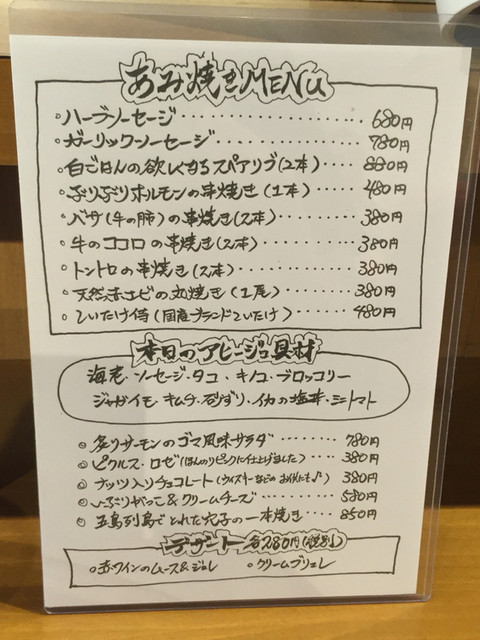 あみ焼きMENU
○ハーブソーセージ・・・・・・・・・・・・680円
○ガーリックソーセージ・・・・・・・・・780円
○白ごはんの欲しくなるスペアリブ(2本)・・・・880円
○ぷりぷりホルモンの串焼き(1本)・・・・480円
○バサ(牛の肺)の串焼き(2本)・・・・・・380円
○牛のココロの串焼き(2本)・・・・・・・380円
○トントロの串焼き(2本)・・・・・・・・380円
○天然赤エビの丸焼き(1尾)・・・・・・・380円
○しいたけ侍(国産ブランドしいたけ)・・・・480円
本日のアヒージョ具材
海老・ソーセージ・タコ・キノコ・ブロッコリー
ジャガイモ・キムチ・砂ずり・イカの塩辛・ミニトマト
○炙りサーモンのゴマ風味サラダ・・・・・・・780円
○ピクルス・ロゼ(ほんのりピンクに仕上げました)・・・380円
○ナッツ入りチョコレート(ウイスキーなどのお供にも♪)380円
○いぶりがっこ&クリームチーズ・・・・・・580円
○五島列島でとれた穴子の一本焼き・・・・850円
デザート 各280円(税別)
○赤ワインのムース&ジュレ ○クリームブリュレ